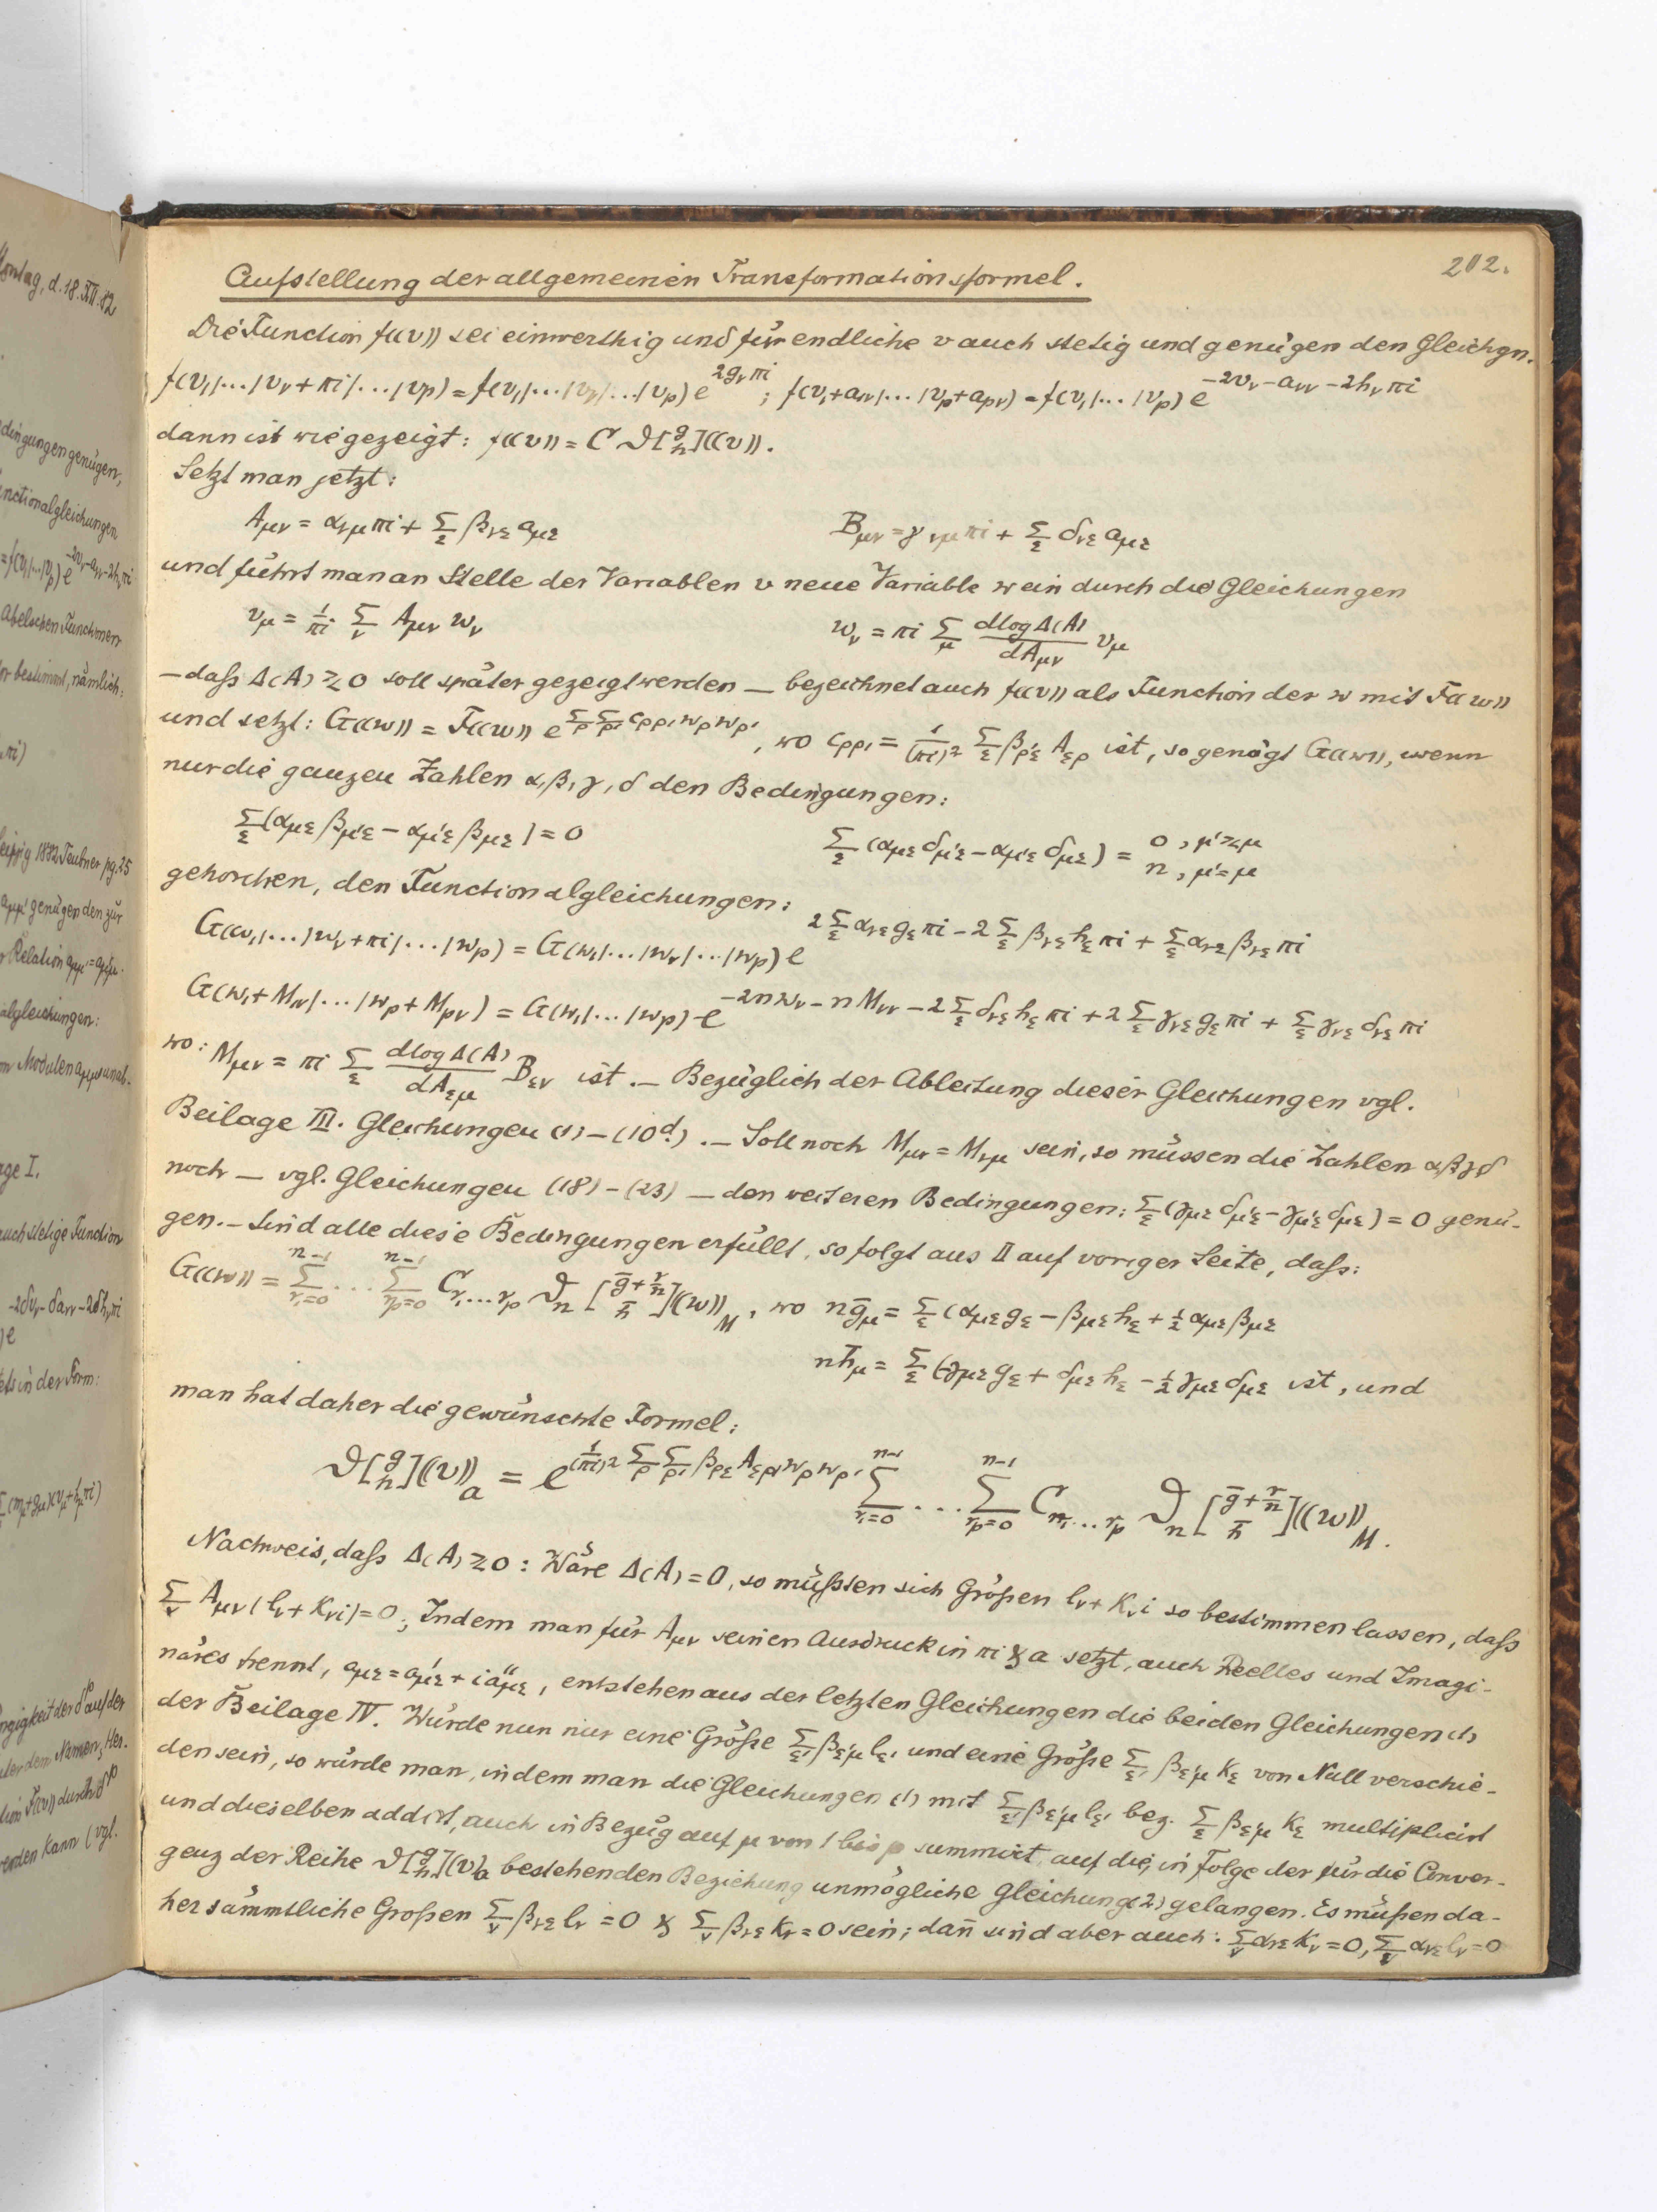 Montag, d. 18. XII. 82
dingungen genügen,
unctionalgleichungen
Abelschen Functionen
or bestimmt, nämlich:
Leipzig 1882 Teubner pg. 25
genügenden zur
Relation
algleichungen:
Modulen
age I.
auch stetige Function
ets in der Form:
ngigkeit der
unter dem Namen
werden kann (vgl.
202.
Aufstellung der allgemeinen Transformationsformel.
Die Function f((v)) sei einwerthig und für endliche v auch stetig und genügen den Gleichgn.
f(v₁|...|vᵥ+πi|...|vₚ) = f(v₁|...|vᵥ|...|vₚ) e^{2gᵥπi} ; f(v₁+a₁ᵥ|...|vₚ+aₚᵥ) = f(v₁|...|vₚ) e^{-2vᵥ-aᵥᵥ-2hᵥπi}
dann ist wie gezeigt: f((v)) = C ϑ[g/h]((v)).
Setzt man jetzt:
A_{μν} = α_{νμ}πi + Σ_ε β_{νε} a_{με} B_{μν} = γ_{νμ}πi + Σ_ε δ_{νε} a_{με}
und führt man an Stelle der Variablen v neue Variable w ein durch die Gleichungen
v_μ = 1/πi Σ_ν A_{μν} w_ν w_ν = πi Σ_μ dlogΔ(A)/dA_{μν} v_μ
— daß Δ(A) ≷ 0 soll später gezeigt werden — bezeichnet auch f((v)) als Function der w mit F((w))
und setzt: G((w)) = F((w)) e^{Σ_ρ Σ_ρ' c_{ρρ'} w_ρ w_ρ'}, wo c_{ρρ'} = 1/(πi)² Σ_ε β_{ρ'ε} A_{ερ} ist, so genügt G((w)), wenn
nur die ganzen Zahlen α, β, γ, δ den Bedingungen:
Σ_ε (α_{με} β_{μ'ε} - α_{μ'ε} β_{με}) = 0 Σ_ε (α_{με} δ_{μ'ε} - α_{μ'ε} δ_{με}) = 0, μ' ≷ μ
n, μ' = μ
gehorchen, den Functionalgleichungen:
G(w₁|...|w_ν+πi|...|w_p) = G(w₁|...|w_ν|...|w_p) e^{2Σ_ε α_{νε} g_ε πi - 2Σ_ε β_{νε} h_ε πi + Σ_ε α_{νε} β_{νε} πi}
G(w₁+M_{1ν}|...|w_p+M_{pν}) = G(w₁|...|w_p) e^{-2nw_ν - nM_{νν} - 2Σ_ε δ_{νε} h_ε πi + 2Σ_ε γ_{νε} g_ε πi + Σ_ε γ_{νε} δ_{νε} πi}
wo: M_{μν} = πi Σ_ε dlogΔ(A)/dA_{εμ} B_{εν} ist. — Bezüglich der Ableitung dieser Gleichungen vgl.
Beilage III. Gleichungen (1) – (10ᵈ.) . — Soll noch M_{μν} = M_{νμ} sein, so müssen die Zahlen αβγδ
noch — vgl. Gleichungen (18) – (23) — den weiteren Bedingungen: Σ_ε (γ_{με} δ_{μ'ε} - γ_{μ'ε} δ_{με}) = 0 genü-
gen. — Sind alle diese Bedingungen erfüllt, so folgt aus II auf voriger Seite, daß:
G((w)) = Σ_{r₁=0}^{n-1} ... Σ_{r_p=0}^{n-1} C_{r₁...r_p} ϑ_n [ḡ+r/n / h̄]((w))_M, wo nḡ_μ = Σ_ε (α_{με} g_ε - β_{με} h_ε + ½ α_{με} β_{με}
nh̄_μ = Σ_ε (-γ_{με} g_ε + δ_{με} h_ε - ½ γ_{με} δ_{με} ist, und
man hat daher die gewünschte Formel:
ϑ[g/h]((v))_a = e^{1/(πi)² Σ_ρ Σ_ρ' β_{ρε} A_{ερ'} w_ρ w_ρ'} Σ_{r₁=0}^{n-1} ... Σ_{r_p=0}^{n-1} C_{r₁...r_p} ϑ_n [ḡ+r/n / h̄]((w))_M.
Nachweis, daß Δ(A) ≷ 0 : Wäre Δ(A) = 0, so müßten sich Größen l_ν + k_ν i so bestimmen lassen, daß
Σ_ν A_{μν}(l_ν + k_ν i) = 0; Indem man für A_{μν} seinen Ausdruck in πi & a setzt, auch Reelles und Imagi-
näres trennt, a_{με} = a'_{με} + i a''_{με}, entstehen aus der letzten Gleichungen die beiden Gleichungen (1)
der Beilage IV. Würde nun nur eine Größe Σ_ε' β_{ε'μ} l_ε' und eine Größe Σ_ε' β_{ε'μ} k_ε von Null verschie-
den sein, so würde man, indem man die Gleichungen (1) mit Σ_ε' β_{ε'μ} l_ε' bez. Σ_ε β_{ε'μ} k_ε multiplicirt
und dieselben addirt, auch in Bezug auf μ von 1 bis p summirt, auf die, in Folge der für die Conver-
genz der Reihe ϑ[g/h]((v))_a bestehenden Beziehung unmögliche Gleichung (2) gelangen. Es müßen da-
her sämmtliche Großen Σ_ν β_{νε} l_ν = 0 & Σ_ν β_{νε} k_ν = 0 sein; dan̄ sind aber auch: Σ_ν α_{νε} k_ν = 0, Σ_ν α_{νε} l_ν = 0